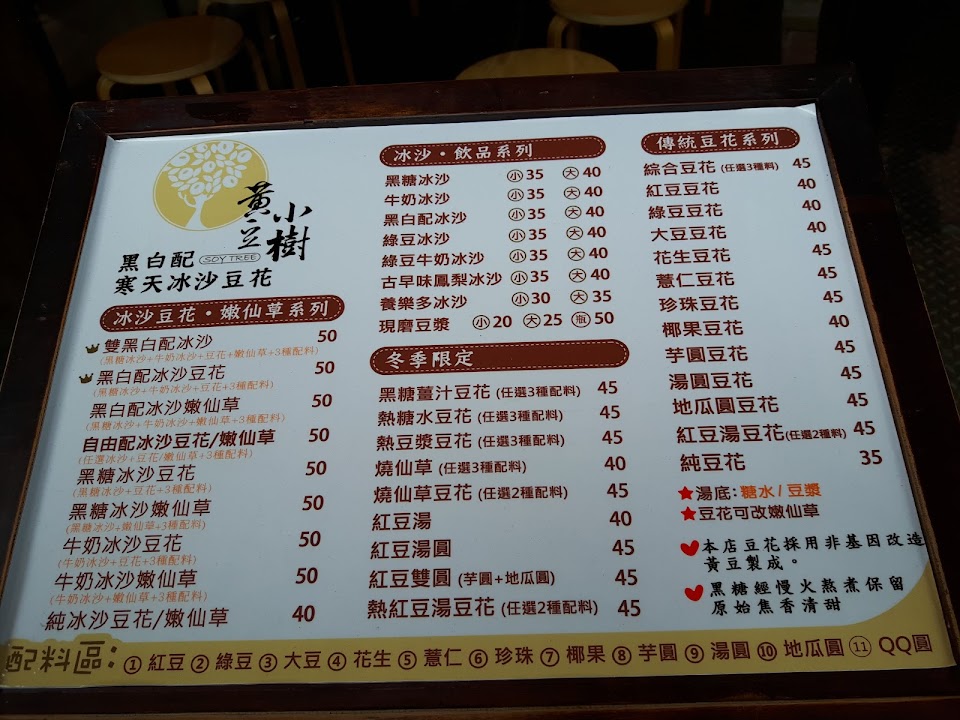 黃豆小樹
SOY TREE
黑白配
寒天冰沙豆花
冰沙豆花・嫩仙草系列
雙黑白配冰沙 50
(黑糖冰沙+牛奶冰沙+豆花+嫩仙草+3種配料)
黑白配冰沙豆花 50
(黑糖冰沙+牛奶冰沙+豆花+3種配料)
黑白配冰沙嫩仙草 50
(黑糖冰沙+牛奶冰沙+嫩仙草+3種配料)
自由配冰沙豆花/嫩仙草 50
(任選冰沙+豆花/嫩仙草+3種配料)
黑糖冰沙豆花 50
(黑糖冰沙+豆花+3種配料)
黑糖冰沙嫩仙草 50
(黑糖冰沙+嫩仙草+3種配料)
牛奶冰沙豆花 50
(牛奶冰沙+豆花+3種配料)
牛奶冰沙嫩仙草 50
(牛奶冰沙+嫩仙草+3種配料)
純冰沙豆花/嫩仙草 40
冰沙・飲品系列
黑糖冰沙 小 35 大 40
牛奶冰沙 小 35 大 40
黑白配冰沙 小 35 大 40
綠豆冰沙 小 35 大 40
綠豆牛奶冰沙 小 35 大 40
古早味鳳梨冰沙 小 35 大 40
養樂多冰沙 小 30 大 35
現磨豆漿 小 20 大 25 瓶 50
冬季限定
黑糖薑汁豆花 (任選3種配料) 45
熱糖水豆花 (任選3種配料) 45
熱豆漿豆花 (任選3種配料) 45
燒仙草 (任選3種配料) 40
燒仙草豆花 (任選2種配料) 45
紅豆湯 40
紅豆湯圓 45
紅豆雙圓 (芋圓+地瓜圓) 45
熱紅豆湯豆花 (任選2種配料) 45
傳統豆花系列
綜合豆花 (任選3種料) 45
紅豆豆花 40
綠豆豆花 40
大豆豆花 40
花生豆花 45
薏仁豆花 40
珍珠豆花 40
椰果豆花 40
芋圓豆花 45
湯圓豆花 45
地瓜圓豆花 45
紅豆湯豆花 (任選2種料) 45
純豆花 35
★湯底：糖水/豆漿
★豆花可改嫩仙草
♥本店豆花採用非基因改造
黃豆製成。
♥黑糖經慢火熬煮保留
原始焦香清甜
配料區：① 紅豆 ② 綠豆 ③ 大豆 ④ 花生 ⑤ 薏仁 ⑥ 珍珠 ⑦ 椰果 ⑧ 芋圓 ⑨ 湯圓 ⑩ 地瓜圓 ⑪ QQ圓